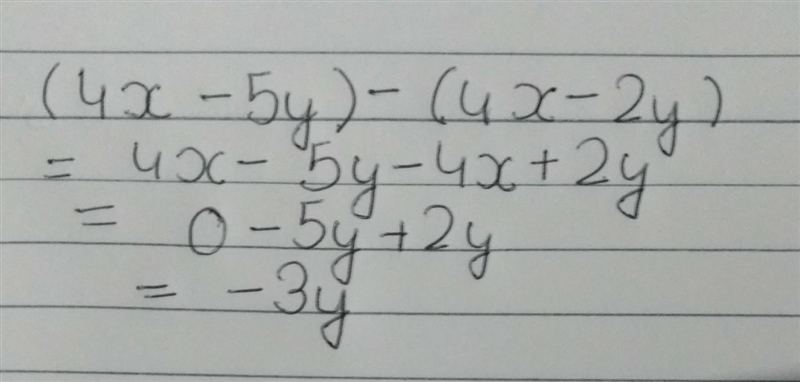 (4x - 5y) - (4x - 2y)
= 4x - 5y - 4x + 2y
= 0 - 5y + 2y
= - 3y